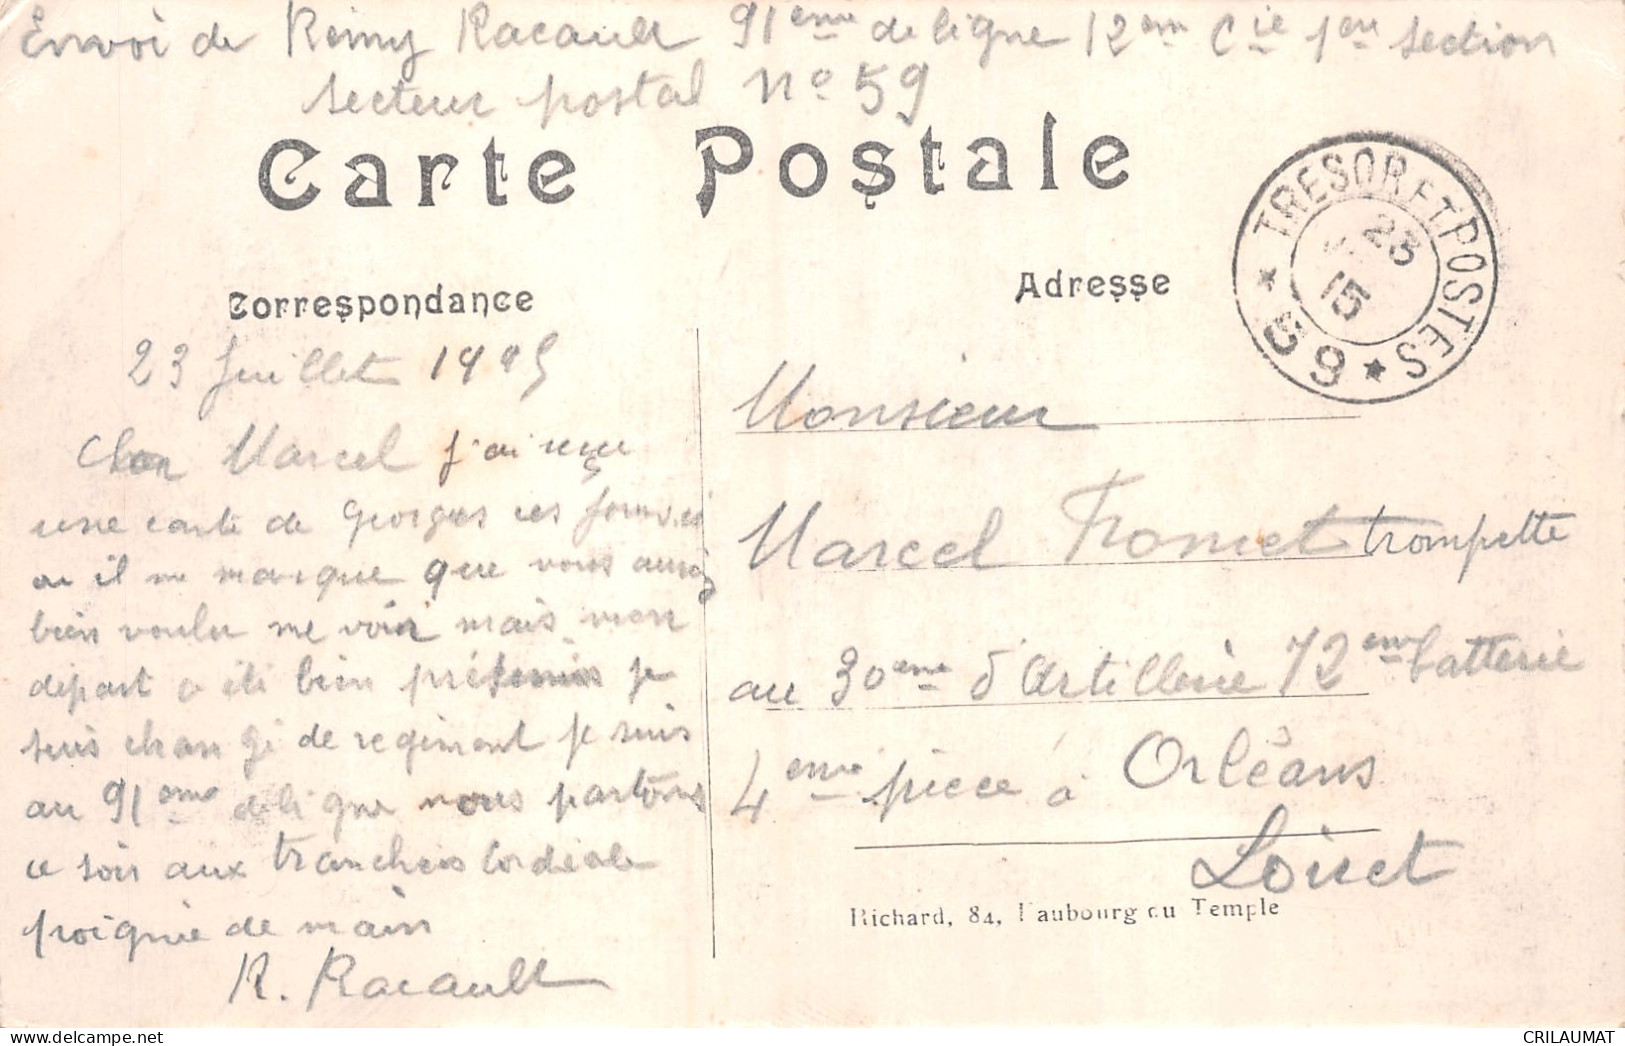 Envoi de Rémy Racault 91eme de ligne 12em Cie 1ere Section
Secteur postal No 59
Carte Postale
TRESOR ET POSTES
23
15
* 59 *
Correspondance
Adresse
23 Juillet 1915
Cher Marcel j'ai reçu
une carte de Georges ces jours ci
ou il me marque que vous auriez
bien vouler me voir mais mon
départ a été bien je
suis changé de regiment je suis
au 91eme de ligne nous partons
ce soir aux tranchées Cordiale
poignée de main
R. Racault
Monsieur
Marcel Fromet trompette
au 30eme d'Artillerie 72eme batterie
4eme pièce à Orléans
Loiret
Richard, 84, Faubourg du Temple
CRILAUMAT